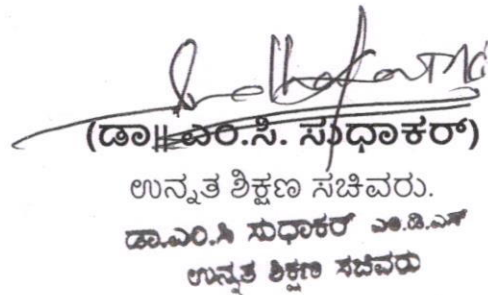 (ಡಾ|| ಎಂ.ಸಿ. ಸುಧಾಕರ್)
ಉನ್ನತ ಶಿಕ್ಷಣ ಸಚಿವರು.
ಡಾ.ಎಂ.ಸಿ ಸುಧಾಕರ್ ಎಂ.ಡಿ.ಎಸ್
ಉನ್ನತ ಶಿಕ್ಷಣ ಸಚಿವರು